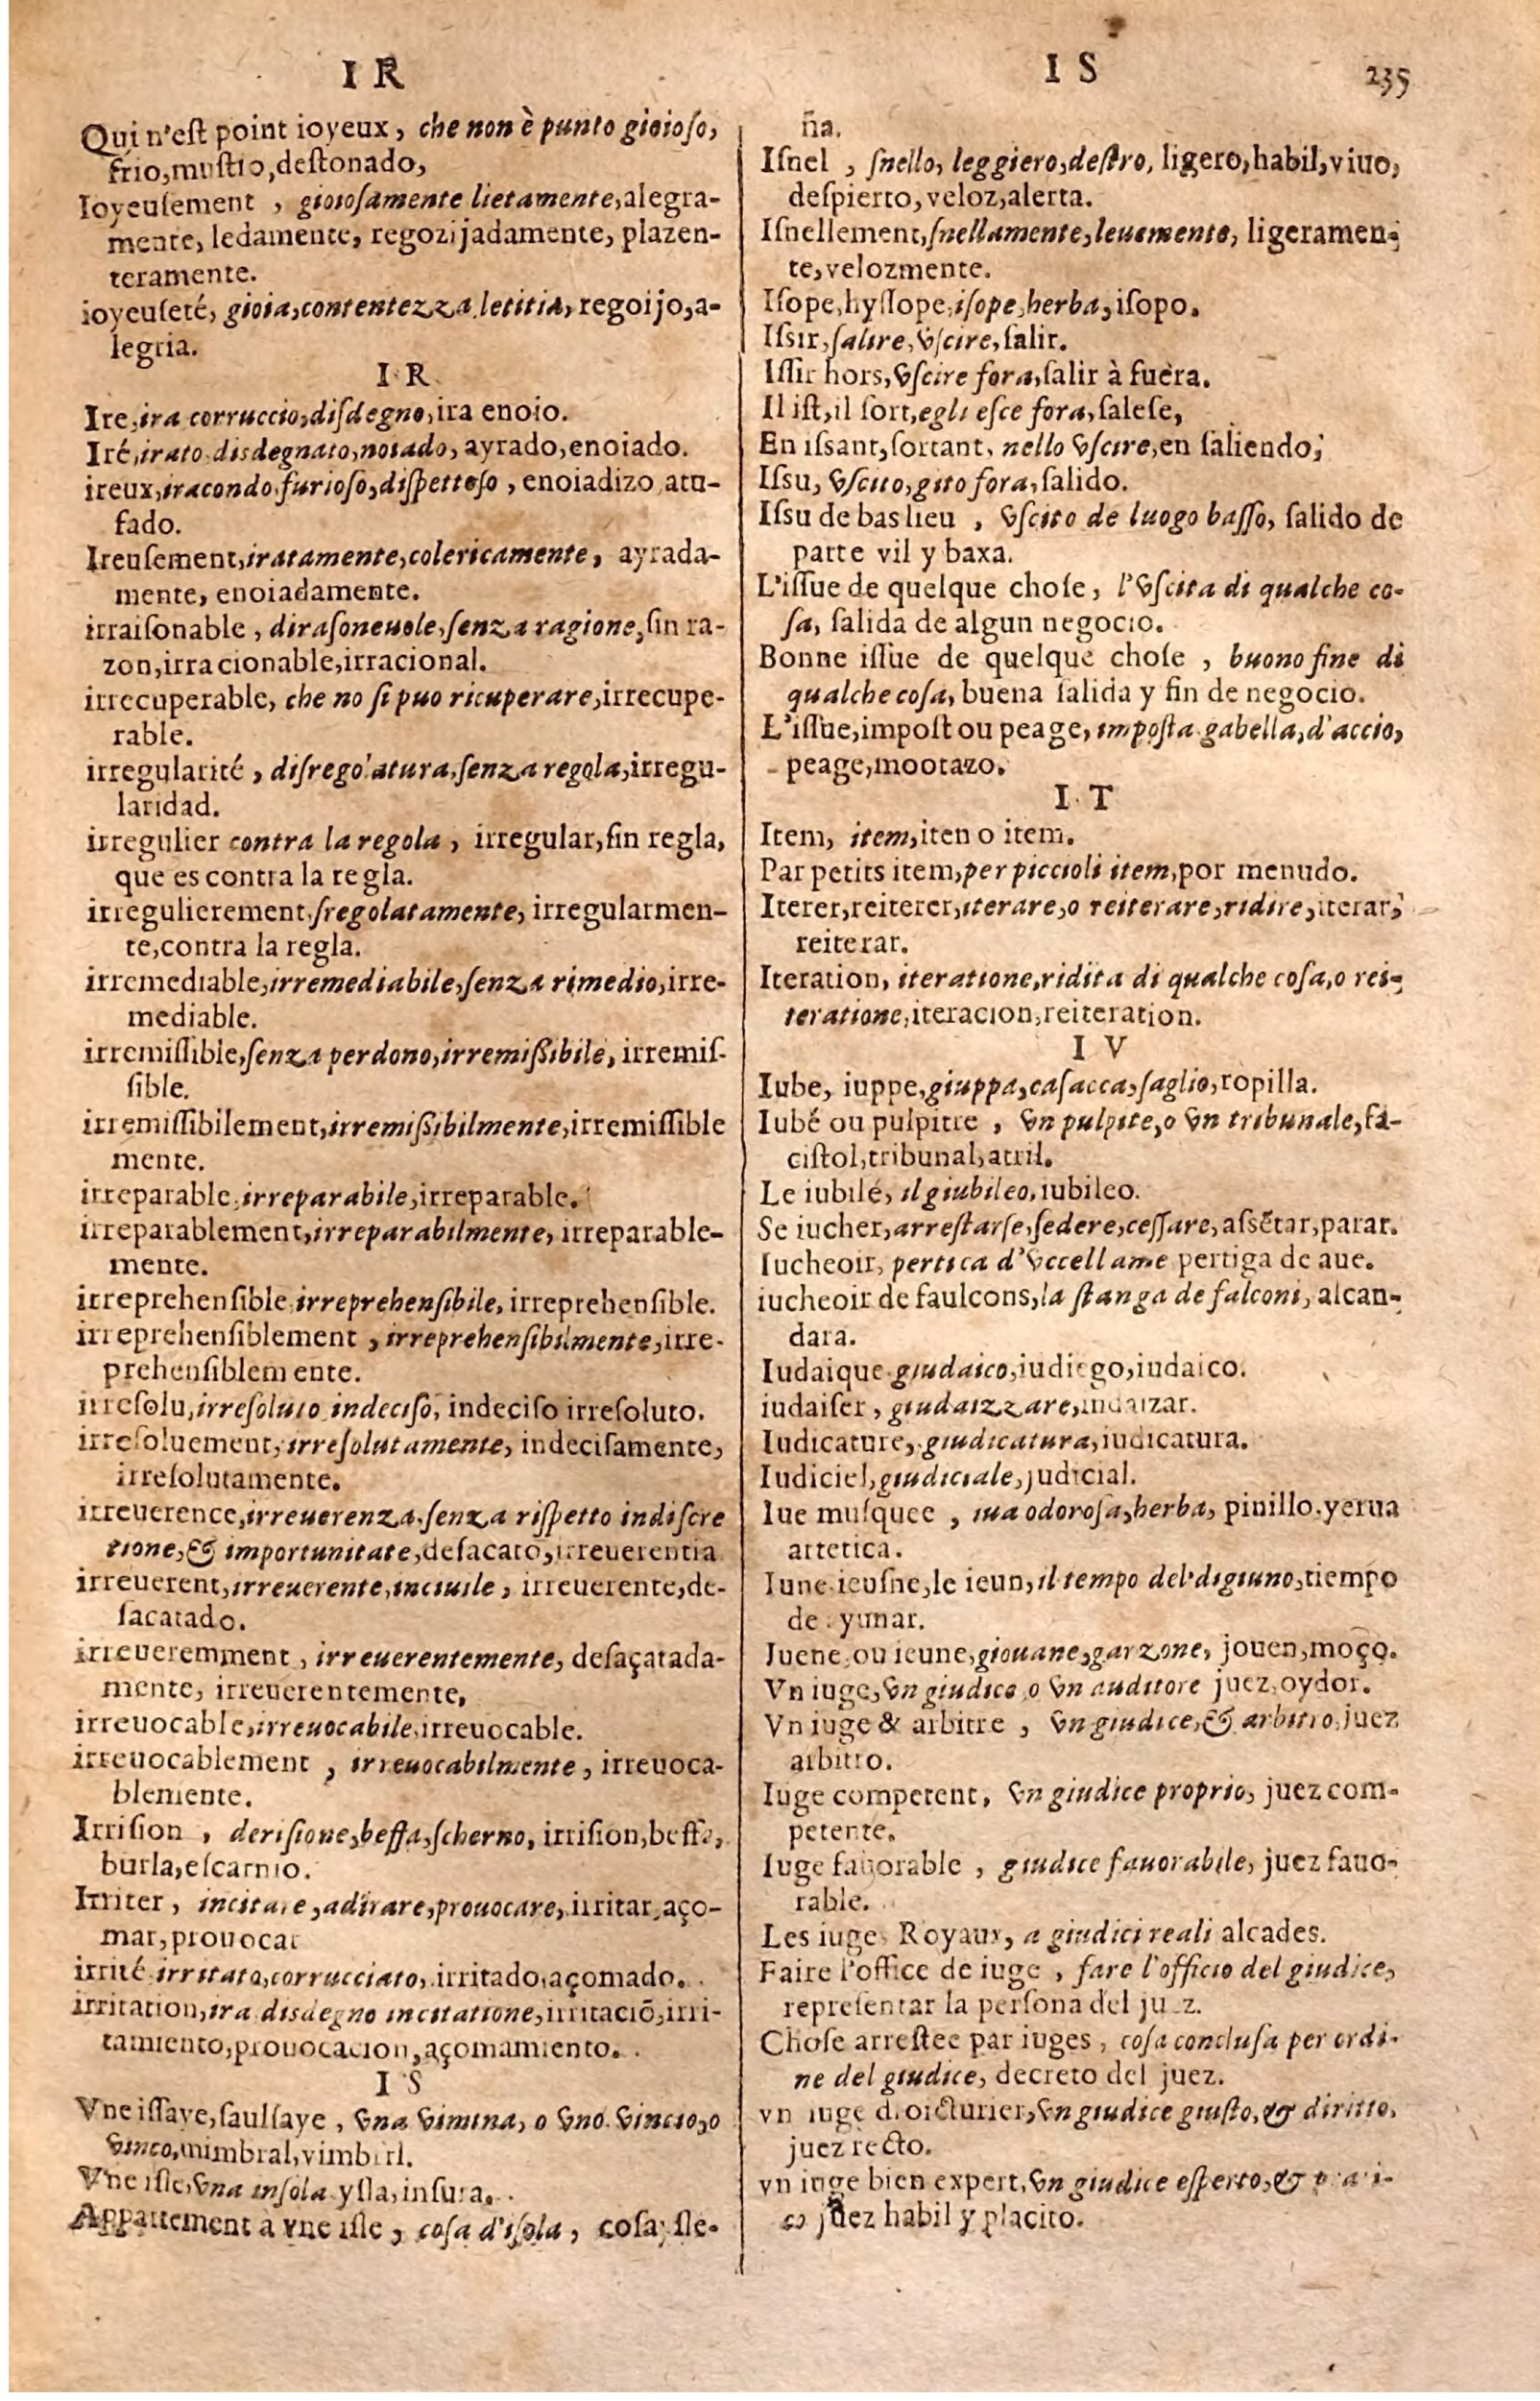 I R
I S
235
Qui n'eſt point ioyeux, che non è punto gioioſo,
frio,muſtio,deſtonado,
Ioyeuſement , gioioſamente lietamente,alegra-
mente, ledamente, regozijadamente, plazen-
teramente.
ioyeuſeté, gioia,contentezza letitia,regoijo,a-
legria.
I R
Ire,ira corruccio,diſdegno,ira enoio.
Iré,irato disdegnato,noiado, ayrado,enoiado.
ireux,iracondo,furioſo,diſpettoſo , enoiadizo atu-
fado.
Ireuſement,iratamente,colericamente, ayrada-
mente, enoiadamente.
irraiſonable , diraſoneuole,ſenza ragione,ſin ra-
zon,irracionable,irracional.
irrecuperable, che no ſi puo ricuperare,irrecupe-
rable.
irregularité , diſregolatura,ſenza regola,irregu-
laridad.
irregulier contra la regola , irregular,ſin regla,
que es contra la regla.
irregulierement,ſregolatamente, irregularmen-
te,contra la regla.
irremediable,irremediabile,ſenza rimedio,irre-
mediable.
irremiſſible,ſenza perdono,irremißibile, irremiſ-
ſible.
irremiſſibilement,irremißibilmente,irremiſſible
mente.
irreparable,irreparabile,irreparable.
irreparablement,irreparabilmente, irreparable-
mente.
irreprehenſible,irreprehenſibile, irreprehenſible.
irreprehenſiblement , irreprehenſibilmente,irre-
prehenſiblem ente.
irreſolu,irreſoluto indeciſo, indeciſo irreſoluto.
irreſoluement,irreſolutamente, indeciſamente,
irreſolutamente.
irreuerence,irreuerenza,ſenza riſpetto indiſcre
tione,& importunitate,deſacato,irreuerentia
irreuerent,irreuerente,inciuile , irreuerente,de-
ſacatado.
irreueremment , irreuerentemente, deſaçatada-
mente, irreuerentemente,
irreuocable,irreuocabile,irreuocable.
irreuocablement , irreuocabilmente , irreuoca-
blemente.
Irriſion , deriſione,beffa,ſcherno, irriſion,beffa,
burla,eſcarnio.
Irriter , incitare,adirare,prouocare, irritar,aço-
mar,prouocar
irrité irritato,corrucciato, irritado,açomado.
irritation,ira disdegno incitatione,irritaciõ,irri-
tamiento,prouocacion,açomamiento.
I S
Vne iſſaye,ſaulſaye , vna vimina, o vno vincio,o
vinco,mimbral,vimbrrl.
Vne iſle,vna inſola yſla,inſura.
Appartement à vne iſle , coſa d'iſola , coſa yſle-
ña.
Iſnel , ſnello, leggiero,deſtro, ligero,habil,viuo,
deſpierto,veloz,alerta.
Iſnellement,ſnellamente,leuemente, ligeramen-
te,velozmente.
Iſope,hyſſope,iſope,herba,iſopo.
Iſſir,ſalire,vſcire,ſalir.
Iſſir hors,vſcire fora,ſalir à fuèra.
Il iſt,il ſort,egli eſce fora,ſaleſe,
En iſſant,ſortant, nello vſcire,en ſaliendo,
Iſſu, vſcito,gito fora,ſalido.
Iſſu de bas lieu , vſcito de luogo baſſo, ſalido de
parte vil y baxa.
L'iſſue de quelque choſe, l'vſcita di qualche co-
ſa, ſalida de algun negocio.
Bonne iſſue de quelque choſe , buono fine di
qualche coſa, buena ſalida y fin de negocio.
L'iſſue,impoſt ou peage, impoſta gabella,d'accio,
peage,mootazo.
I T
Item, item,iten o item.
Par petits item,per piccioli item,por menudo.
Iterer,reiterer,iterare,o reiterare,ridire,iterar,
reiterar.
Iteration, iteratione,ridita di qualche coſa,o rei-
teratione,iteracion,reiteration.
I V
Iube, iuppe,giuppa,caſacca,ſaglio,ropilla.
Iubé ou pulpitre , vn pulpite,o vn tribunale,fa-
ciſtol,tribunal,atril.
Le iubilé, il giubileo,iubileo.
Se iucher,arreſtarſe,ſedere,ceſſare,aſsẽtar,parar.
Iucheoir, pertica d'vccellame pertiga de aue.
iucheoir de faulcons,la ſtanga de falconi, alcan-
dara.
Iudaique giudaico,iudiego,iudaico.
iudaiſer , giudaizzare,iudaizar.
Iudicature, giudicatura,iudicatura.
Iudiciel,giudiciale,judicial.
Iue muſquee , iua odoroſa,herba, pinillo,yerua
artetica.
Iune ieuſne,le ieun,il tempo del digiuno,tiempo
de yunar.
Iuene ou ieune,giouane,garzone, jouen,moço.
Vn iuge,vn giudice o vn auditore juez,oydor.
Vn iuge & arbitre , vn giudice,& arbitro,juez
arbitro.
Iuge competent, vn giudice proprio, juez com-
petente.
Iuge fauorable , giudice fauorabile, juez fauo-
rable.
Les iuges Royaux, a giudici reali alcades.
Faire l'office de iuge , fare l'officio del giudice,
repreſentar la perſona del juez.
Choſe arreſtee par iuges , coſa concluſa per ordi-
ne del giudice, decreto del juez.
vn iuge droicturier,vn giudice giuſto,& diritto,
juez recto.
vn iuge bien expert,vn giudice eſperto,& prati-
co juez habil y placito.